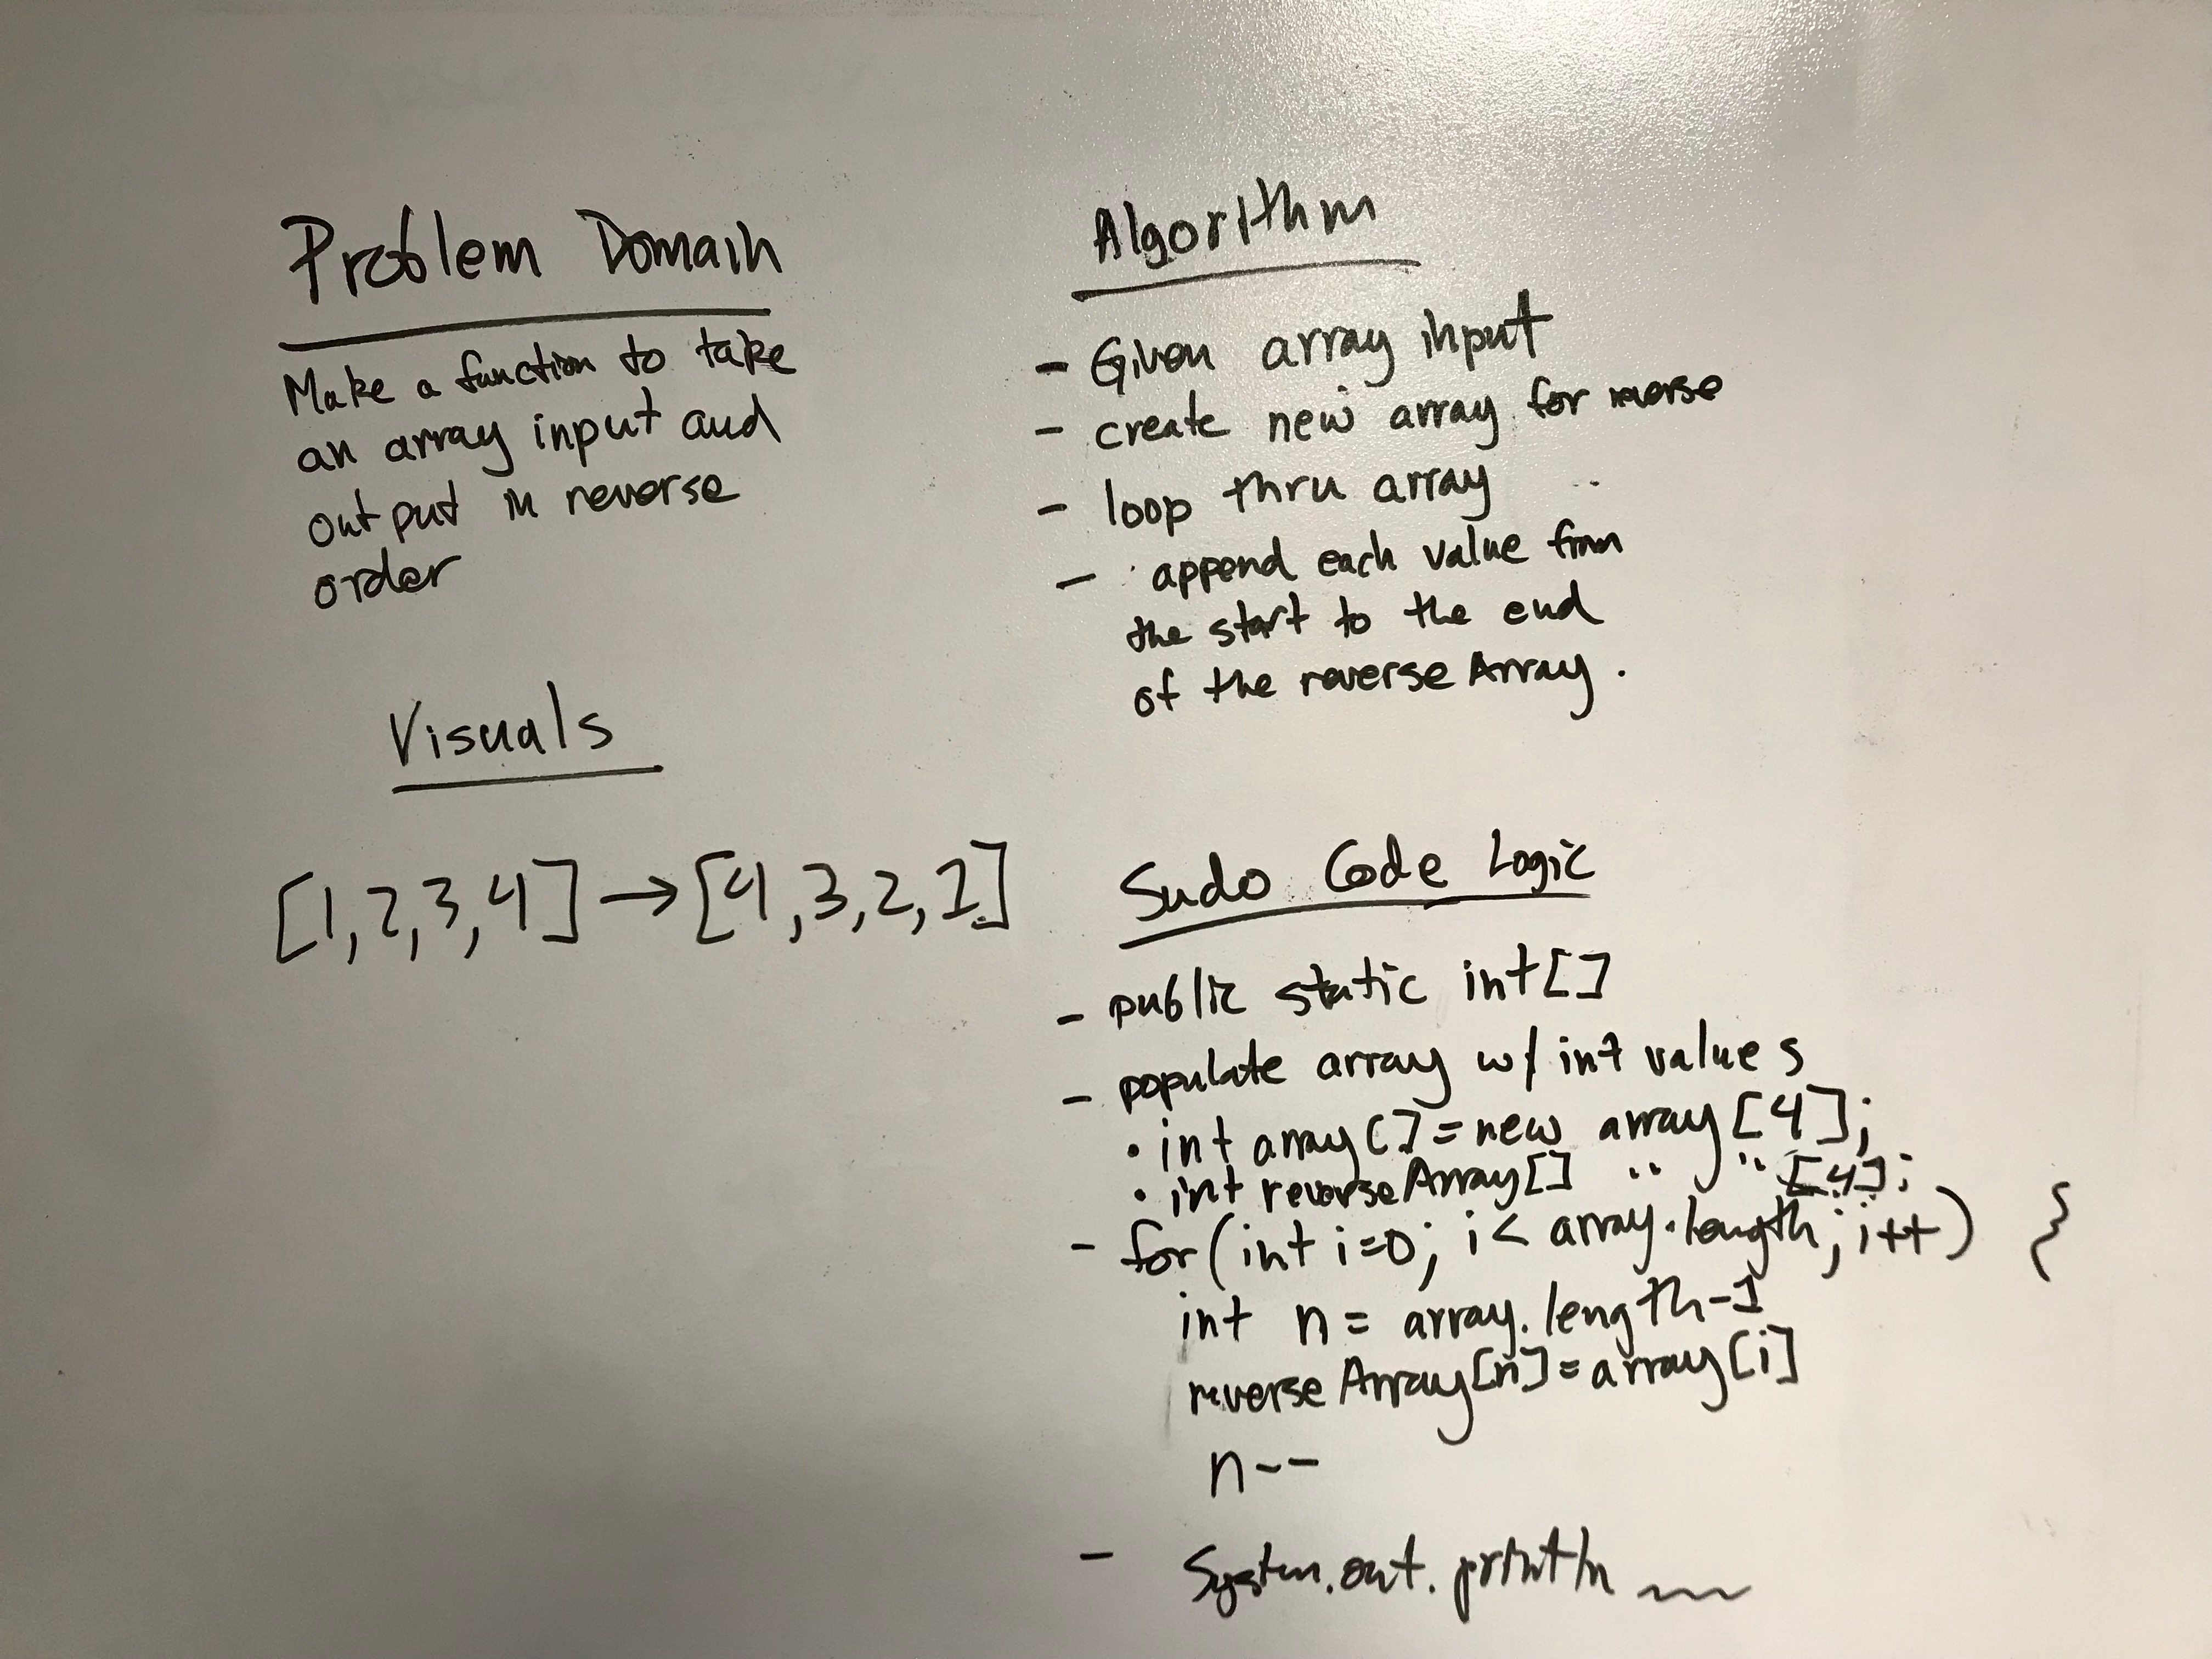 Problem Domain
Make a function to take
an array input and
output in reverse
order
Visuals
[1,2,3,4] → [4,3,2,1]
Algorithm
- Given array input
- create new array for reverse
- loop thru array
- append each value from
the start to the end
of the reverse Array.
Sudo Code Logic
- public static int[]
- populate array w/ int values
• int array[] = new array[4];
• int reverseArray[] " " [4];
- for(int i=0; i< array.length; i++) {
int n = array.length-1
reverse Array[n] = array[i]
n--
- System.out.println